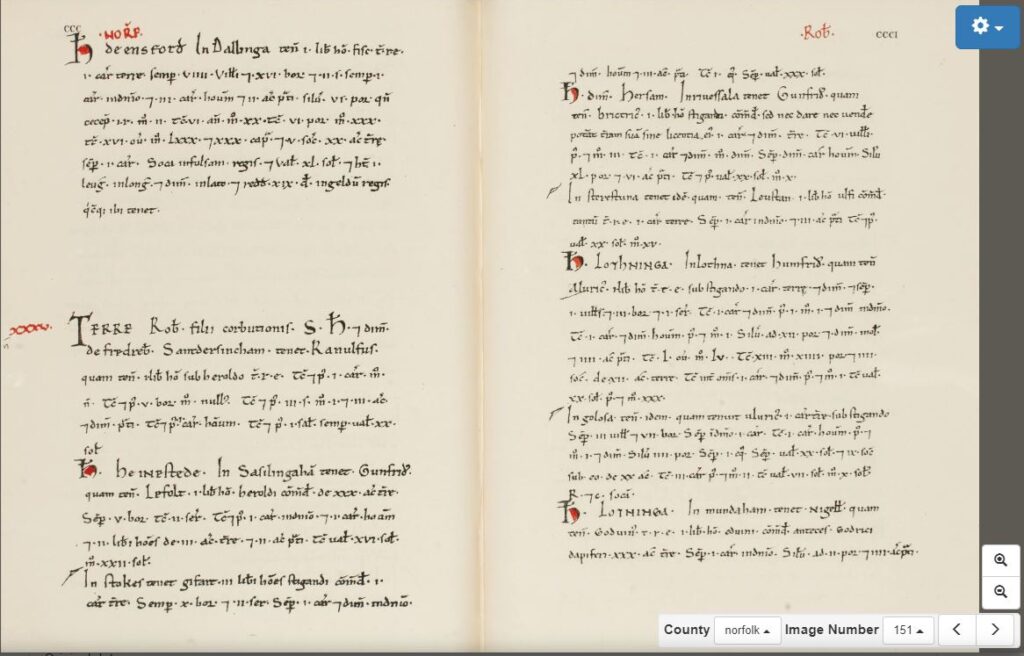 ccc
·NORF·
H̄ de ensford In Dallinga ten̄ ·i· lib̄ hō
·i· car̄ terre semp̄ ·viiii· vill̄i ⁊ xvi· bor ⁊ ·ii· s· semp̄ ·i·
car̄ in dn̄io ⁊ ·iii· car̄ houm̄ ⁊ ii ac̄ p̄ti silu̅ vi· por
⁊ m̄ ·ii· m̄ xx· tē· vi por m̄ xxx·
tē· xvi· ou̅ m̄ lxxx· ⁊ xxx· cap̄ ⁊ ·v· soc̄ xx· ac̄ t̄re
sēp̄ ·i· car̄· Soca in fulsam regis ⁊ ual̄ xl sol̄ ⁊ ht̄ ·i·
leug̅ in long̅ ⁊ dim̄ in lato ⁊ redd̄ xix· d̄ in geldū regis
ibi tenet·
xxxv·
TERRE Rob̄· filii corbutionis· S· H̄ ⁊ dim̄·
de fredreb̄· Santdersincham· tenet· Ranulfus·
quam ten̄ ·i· lib̄ hō sub heroldo t̄· r· e· Tē ⁊ p̄· i· car̄· m̄·
n̄· Tē ⁊ p̄· v· bor m̄· null̄· Tē ⁊ p̄· iii· s· m̄· i· ⁊ ·i· ac̄
⁊ dim̄· p̄ti· Tē ⁊ p̄· car̄ hōum· Tē ⁊ p̄· i· sal̄· semp̄ ual̄· xx·
sol̄
H̄· HEINESTEDE· In Sasilingahā tenet· Gunfrid̄·
quam ten̄ Lefolt· i· lib̄ hō· heroldi cōm̄d̄· de xxx· ac̄ t̄re·
Sēp̄· v· bor· tē· ii· ser̄· Tē ⁊ p̄· i· car̄· in dn̄io· ⁊ ·i· car̄· hōum
⁊ ·ii· lib̄i hōes de iii· ac̄ t̄re· ⁊ ·ii· ac̄ p̄ti· Tē ual̄· xvi sol̄·
m̄· xxii· sol̄·
In stokes tenet gifart· iii lib̄i hōes stigandi cōm̄d̄· i·
car̄ t̄re· Semp̄· x· bor ⁊ ·ii· ser· Sēp̄· i· car̄ ⁊ dim̄· in dn̄io·
·Rob̄·
ccci
⁊ dim̄· houm̄ ⁊ iii· ac̄· p̄ti· Tē· i· Sēp̄· ual̄· xxx· sol̄·
H̄· dim̄· Hersam· In riuessala tenet Gunfrid̄· quam
ten̄· brictric̄· i· lib̄ hō stigandi cōm̄d̄· sed nec dare nec uende
potāt terram suā sine licentia· ei᷒· i· car̄· ⁊ dim̄· t̄re· Tē· vi· vill̄i
p̄· ⁊ m̄ iii· Tē· i· car̄ ⁊ dim̄· m̄· dim̄· Sēp̄· dim̄· car̄ houm̄· Silu̅
xl· por ⁊ vi· ac̄ p̄ti· Tē ⁊ p̄ ual̄· xx· sol̄· m̄· x·
In sterestuna tenet idē· quam· ten̄· Leustan· i· lib̄ hō ulfi cōm̄d̄·
tantū t̄· r· e· i· car̄ terre· Sēp̄· i· car̄ in dn̄io· ⁊ iii· ac̄ p̄ti· Tē ⁊ p̄·
ual̄· xx· sol̄· m̄· xv·
H̄· LOTHNINGA· In lothna· tenet humfrid̄· quam ten̄
Aluric̄· lib̄ hō t̄· r· e· sub stigando· i· car̄· terre· ⁊ dim̄· ⁊ sēp̄·
i· vill̄s· ⁊ iii· bor ⁊ ·i· ser̄· Tē· i· car̄ ⁊ dim̄· p̄· i· m̄· i· ⁊ dim̄· in dn̄io·
Tē· i· car̄· ⁊ dim̄ houm̄· p̄· ⁊ m̄· i· Silu̅· ad· xii· por ⁊ dim̄· mol̄·
⁊ iiii· ac̄ p̄ti· Tē· l· ou̅· m̄· lv· Tē xiii· m̄· xiiii· por ⁊ iiii·
soc̄· de xii· ac̄· terre· Tē int̄ om̄s· i· car̄· ⁊ dim̄· p̄· ⁊ m̄· i· Tē ual̄·
xx sol̄· p̄· ⁊ m̄· xxx·
In golosa· ten̄· idem· quam tenuit aluric̄· i· car̄ t̄re· sub stigando
Sēp̄· iii vill̄ ⁊ vii· bor· Sēp̄ in dn̄io· i· car̄· Tē· i· car̄· houm̄· p̄· ⁊
m̄· i· ⁊ dim̄· Silu̅ iiii· por· Sēp̄· i· Sēp̄· ual̄· xx· sol̄· ⁊ ix· soc̄
sub eo· de xx ac̄· Tē iii· car̄ p̄· ⁊ m̄· ii· tē ual̄· vii· sol̄· m̄· x· sol̄·
R· ⁊ e· soca·
H̄· LOTNINGA· In mundaham· tenet· nigell̄· quam
ten̄· Goduin᷒· t· r· e· i· lib̄ hō· eduini cōm̄d̄· anteces̄· Godrici
dapiferi· xxx· ac̄ t̄re· Sēp̄· i· car̄ in dn̄io· Silu̅· ad· ii· por ⁊ iiii· ac̄ p̄ti·
County norfolk Image Number 151